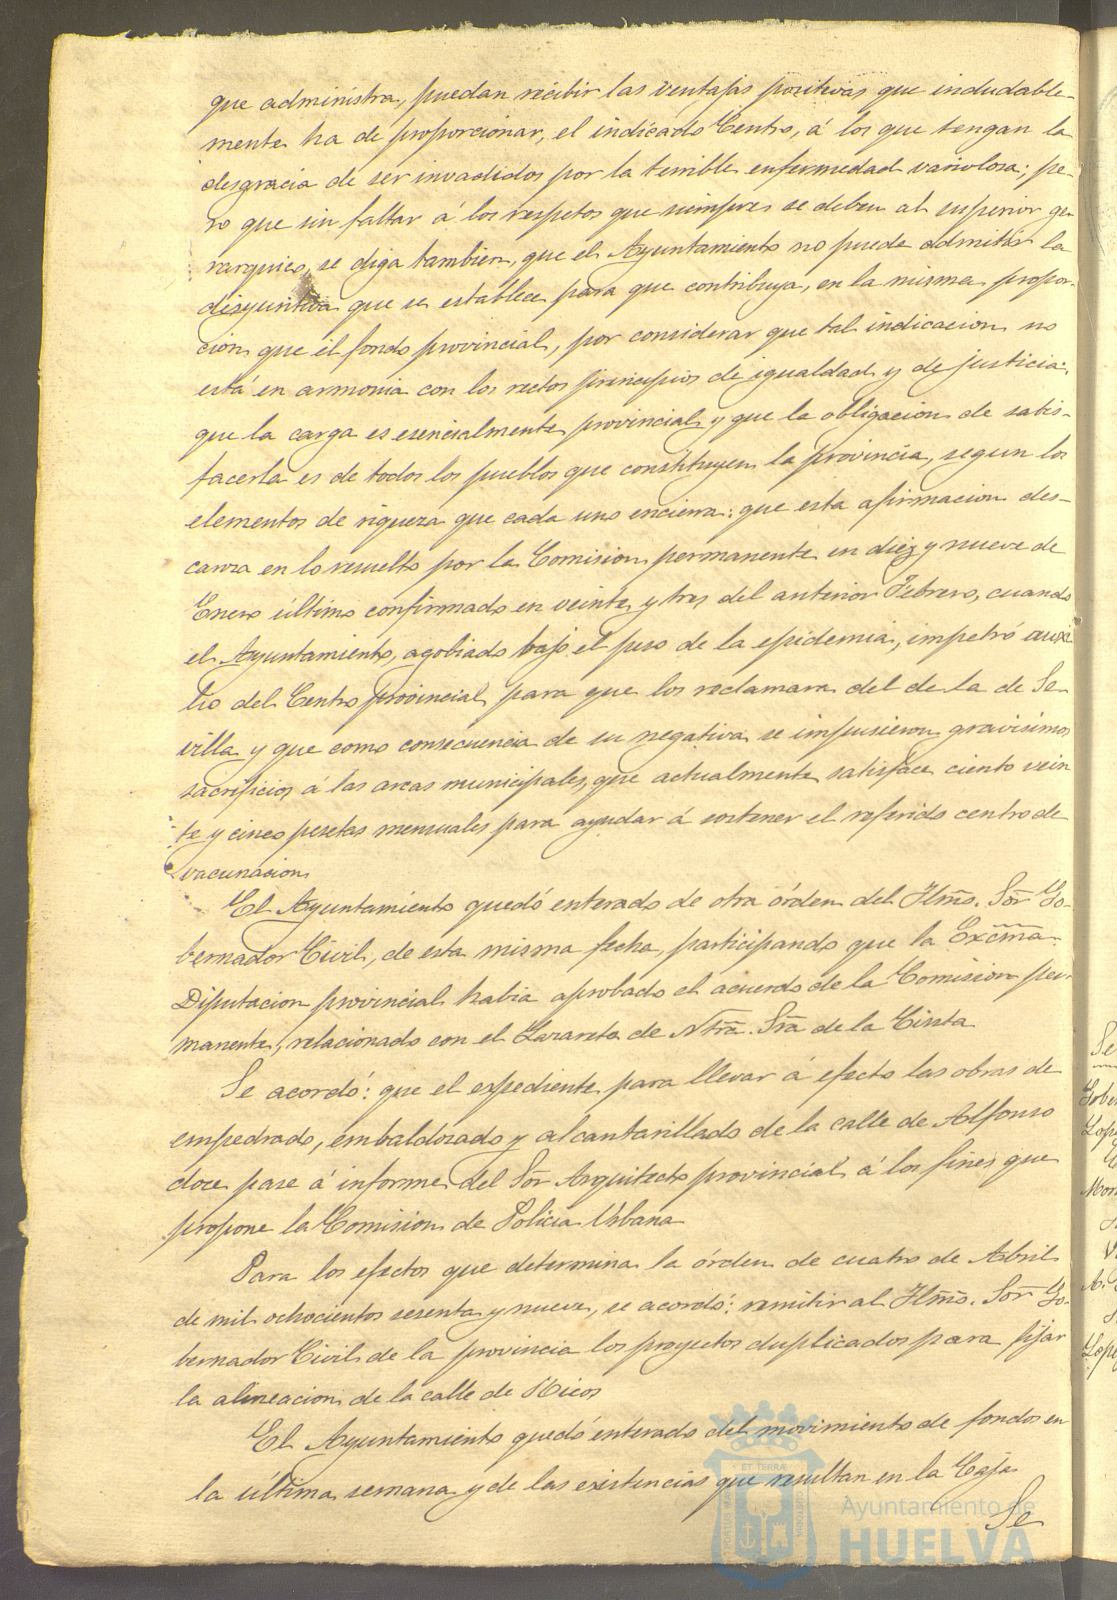 que administra, puedan recibir las ventajas positivas que indudable-
mente ha de proporcionar, el indicado Centro, á los que tengan la
desgracia de ser invadidos por la terrible enfermedad variolosa; pe-
ro que sin faltar á los respetos que siempre se deben al superior ge-
rarquico, se diga tambien, que el Ayuntamiento no puede admitir la
disyuntiva que se establece para que contribuya, en la misma propor-
cion que el fondo provincial, por considerar que tal indicacion no
está en armonia con los rectos principios de igualdad y de justicia:
que la carga es esencialmente provincial y que la obligacion de satis-
facerla es de todos los pueblos que constituyen la provincia, segun los
elementos de riqueza que cada uno encierra: que esta afirmacion des-
canza en lo resuelto por la Comision permanente en diez y nueve de
Enero último confirmado en veinte y tres del anterior Febrero, cuando
el Ayuntamiento, agobiado bajo el peso de la epidemia, impetró auxi
lio del Centro provincial para que los reclamara del de la de Se-
villa y que como consecuencia de su negativa se impusieron gravisimos
sacrificios á las arcas municipales, que actualmente satisface ciento vein
te y cinco pesetas mensuales para ayudar á sostener el referido centro de
vacunacion
El Ayuntamiento quedó enterado de otra órden del Iltmo. Sor Go-
bernador Civil, de esta misma fecha, participando que la Excma.
Diputacion provincial habia aprobado el acuerdo de la Comision per-
manente, relacionado con el Lazareto de Ntra. Sra de la Cinta
Se acordó: que el expediente para llevar á efecto las obras de
empedrado, embaldosado y alcantarillado de la calle de Alfonso
doce pase á informe del Sor Arquitecto provincial á los fines que
propone la Comision de Policia Urbana
Para los efectos que determina la órden de cuatro de Abril
de mil ochocientos sesenta y nueve, se acordó: remitir al Iltmo. Sor Go-
bernador Civil de la provincia los proyectos duplicados para fijar
la alineacion de la calle de Ricos
El Ayuntamiento quedó enterado del movimiento de fondos en
la última semana y de las existencias que resultan en la Caja
Se
Ayuntamiento de
HUELVA